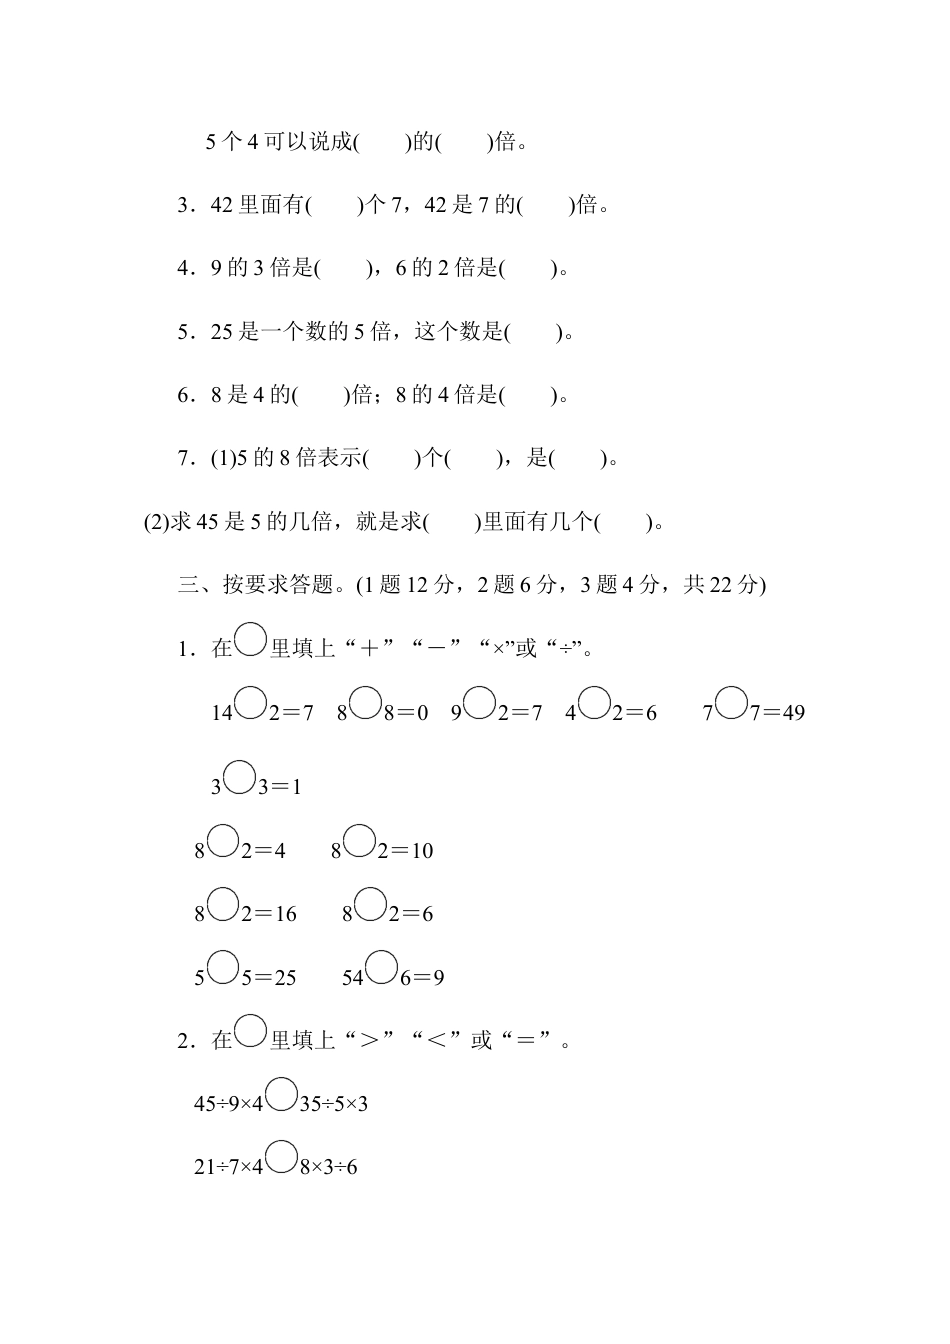 5 个 4 可以说成(　　)的(　　)倍。
3．42 里面有(　　)个 7，42 是 7 的(　　)倍。
4．9 的 3 倍是(　　)，6 的 2 倍是(　　)。
5．25 是一个数的 5 倍，这个数是(　　)。
6．8 是 4 的(　　)倍；8 的 4 倍是(　　)。
7．(1)5 的 8 倍表示(　　)个(　　)，是(　　)。
(2)求 45 是 5 的几倍，就是求(　　)里面有几个(　　)。
三、按要求答题。(1 题 12 分，2 题 6 分，3 题 4 分，共 22 分)
1．在○里填上“＋”“－”“×”或“÷”。
14○2＝7　8○8＝0　9○2＝7　4○2＝6　　7○7＝49
3○3＝1
8○2＝4　　8○2＝10
8○2＝16　　8○2＝6
5○5＝25　　54○6＝9
2．在○里填上“＞”“＜”或“＝”。
45÷9×4○35÷5×3
21÷7×4○8×3÷6